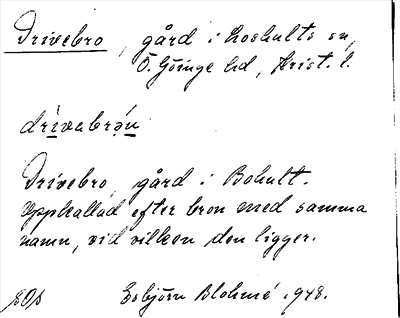 Drivebro, gård i Loshults sn,
Ö. Göinge hd, Krist. l.
drivabrọ́n
Drivebro, gård i Bohult.
Uppkallad efter bron med samma
namn, vid vilken den ligger.
Esbjörn Blohmé 1948.